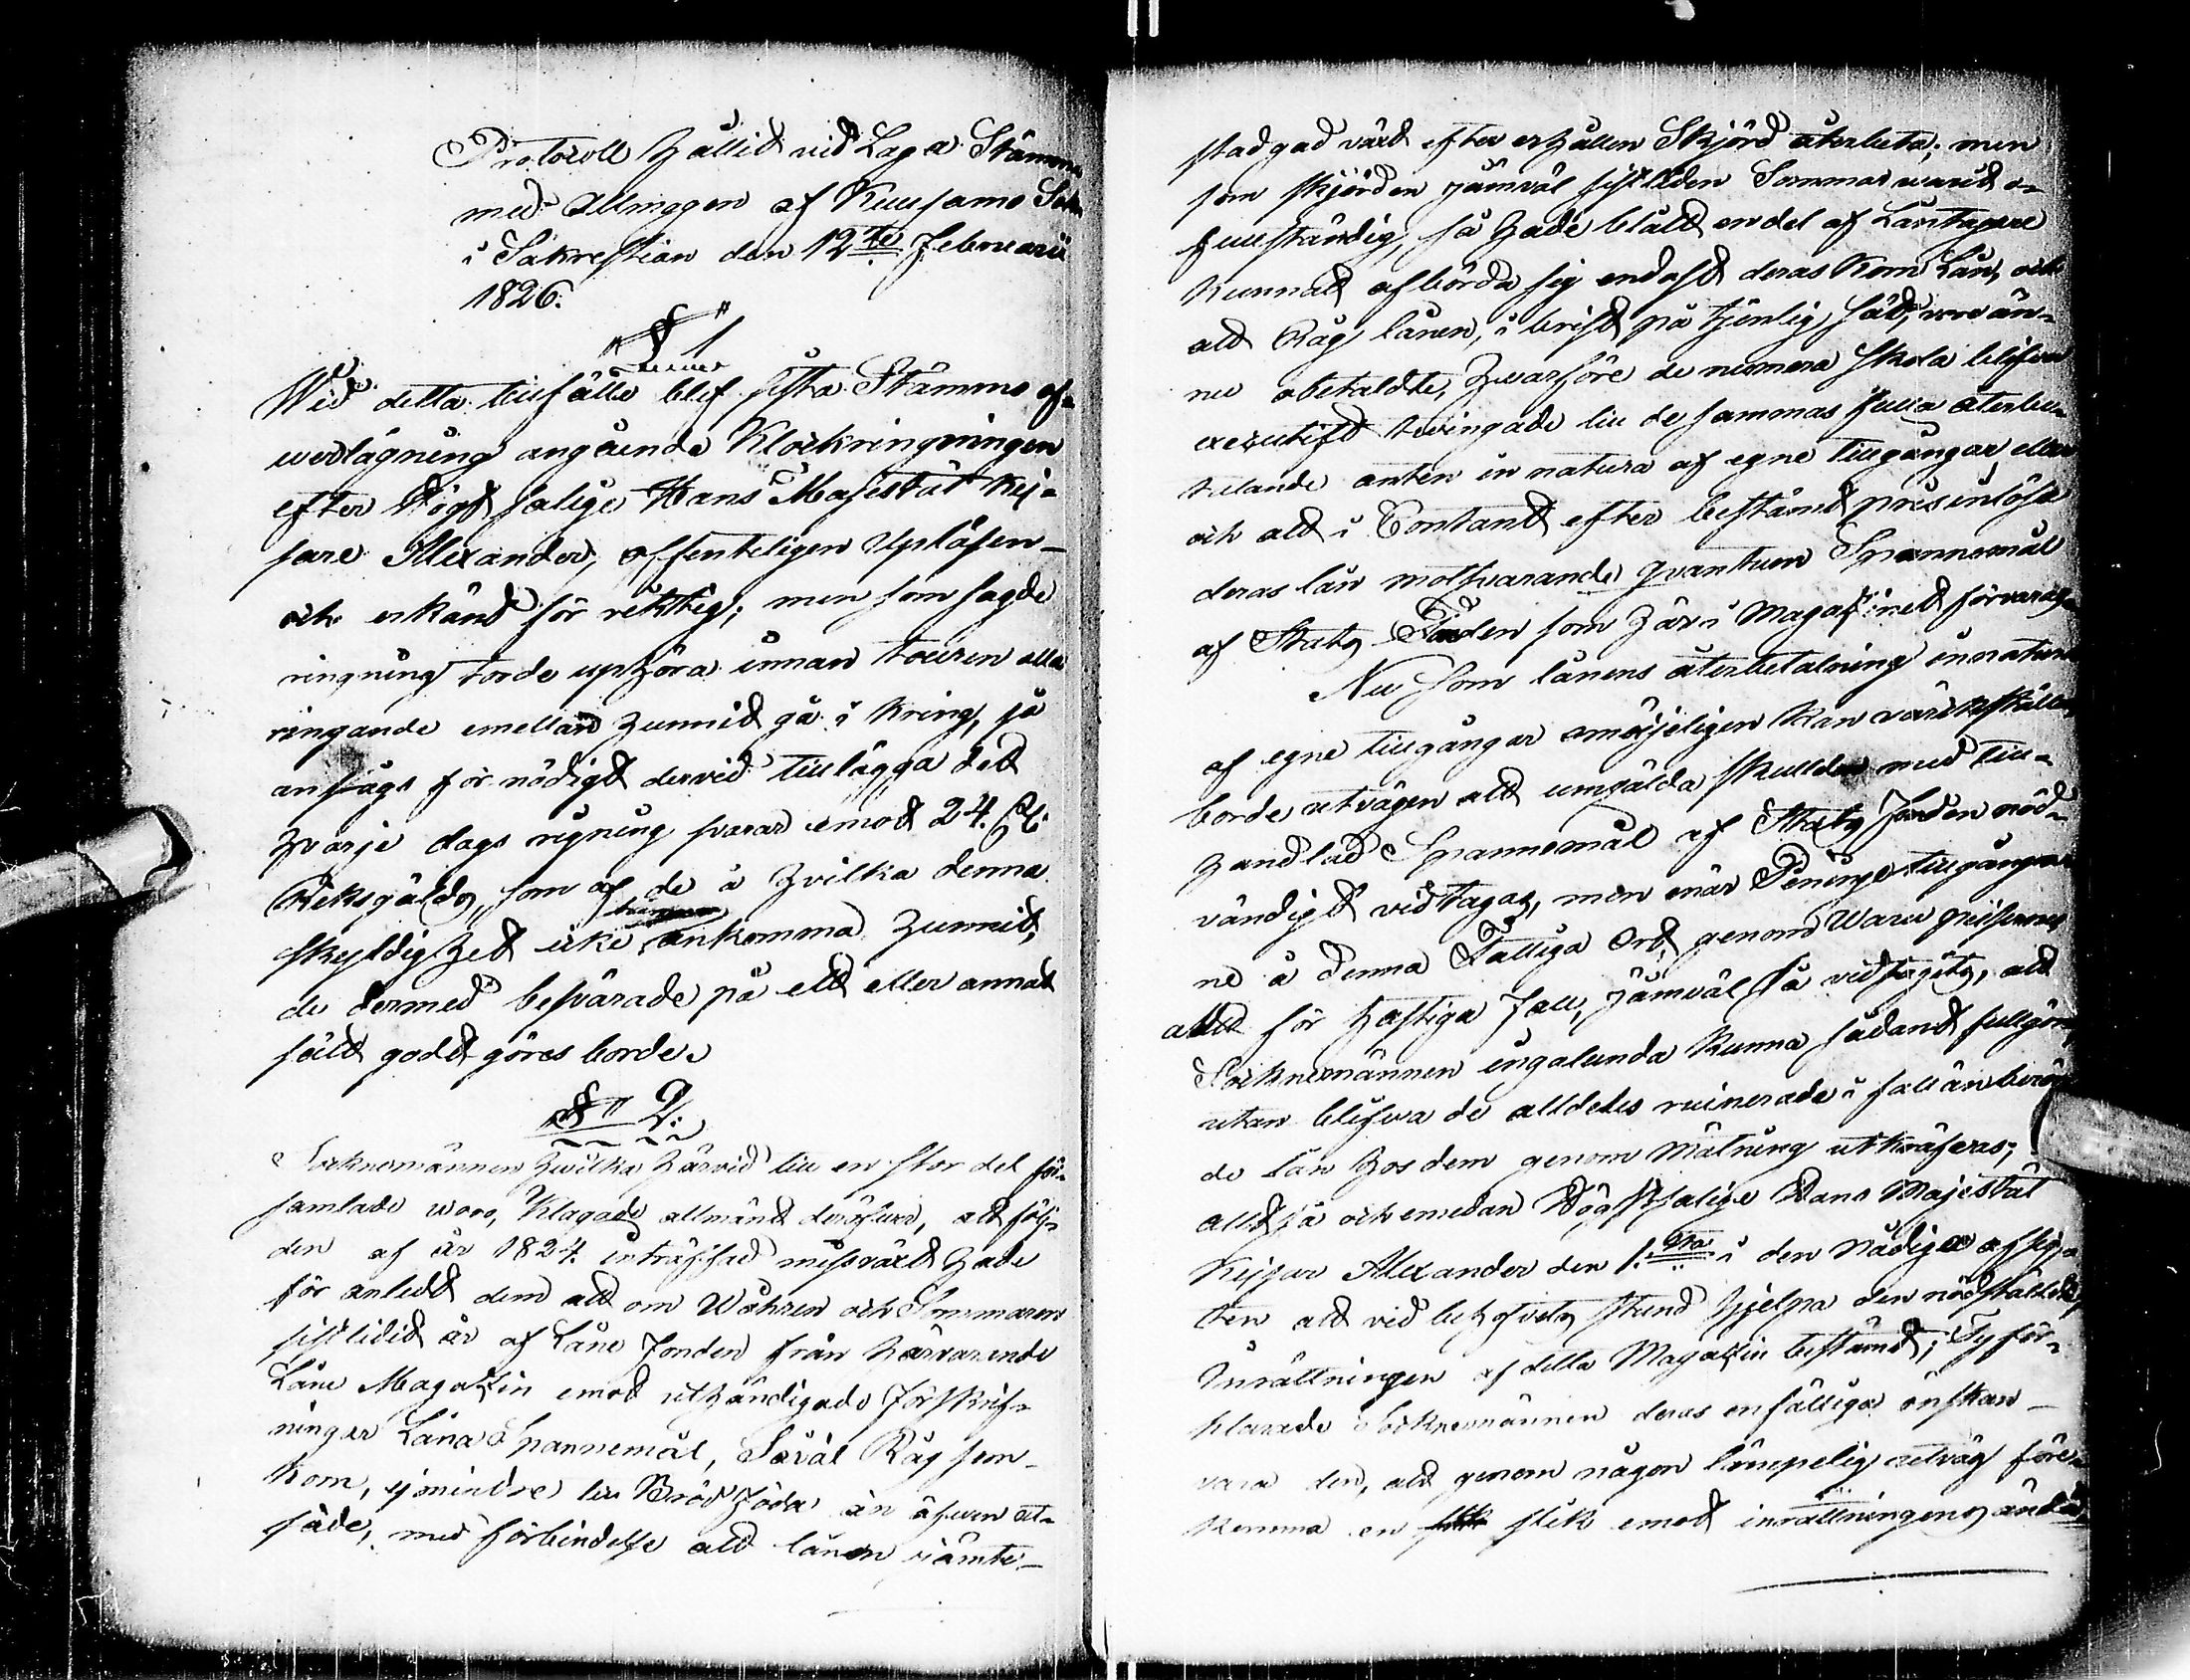 Protocoll hållit vid Laga Stämma
med Allmogen af Kuusamo Sokn
i Sakrestian den 12te Februarii
1826.
§ 1
Wid detta tillfälle blef sista Stämmo öf-
werlägning angående Klockringningen
efter Högst salige Hans Majestät Kej-
sare Alexander, offenteligen Upläsen
och erkänd för rikttig; men som sagde
ringning torde uphöra innan touren alla
ringande emellan hunnit gå i kring, så
ansågs för nödigt dervid tillägga det
hvarje dags rigning svarar emot 24 s:
Riksgälds, som af de å hvilka denna
skyldighet icke ankomma hunnit,
de dermed besvärade på ett eller annat
sätt godt göras borde.
§ 2:
Socknemännen hvilka härvid till en stor del för-
samlade woro, Klagade allmänt deröfwer, att följ-
den af år 1824 inträffad missväxt hade
för anledt dem att om Wåhren och Sommaren
sistledit år af Låne Fonden från härvarande
Låne Magazin emot uthändigade Förskrif-
ningar Låna Spannemål, Såväl Råg som
Korn, ej mindre till Bröd föda än äfwen ut-
säde, med förbindelse att lånen jämte
stadgad växt efter erhållen Skjörd återbeta; men
som skjörden jämväl sistleden Sommar warit o-
fullständig, så hade blått en del af Låntagare
kunnat afbörda sig endast deras Korn Lån, och
att Råg lånen, i brist på tjenlig säd, voro än-
nu obetaldte, hvarföre de nummera skola blifwa
executift twingade till de sammas fulla återbe-
talande anten in natura af egne tillgångar eller
och att i Contant efter bestämd pris inlösa
deras lån motsvarande qvantum Spannemål
af Stats Fonden som här i Magazinet förvaras.
Nu som lånens återbetalning in natura
af egne tillgångar omöjeligen kan värkställas,
borde utvägen att umgälda skulden med till-
handlad Spannemål af Stats Fonden nöd-
vändigt vidtagas, men enär Peninge tillgångar-
ne å denna Fattiga Ort genom Waru prisernes
alldt för hastiga Fall, jämväl så vidtagits, att
Socknemännen ingalunda kunna sådant fullgöra,
utan blifwa de alldeles ruinerade i fall än berör-
de lån hos dem genom mätning utkräfvas;
alldt så och emedan Högst salige Hans Majestät
Kejsar Alexander den 1:sta i den Nådiga afsig-
ten att vid behofvets stund hjelpa den nödställde,
Inrättningen af detta Magazin bestämt; Ty för-
klarade Socknemännen deras enfälliga önskan
vara den, att genom någon lämpelig utväg före-
komma en slik emot inrättningens ändamål